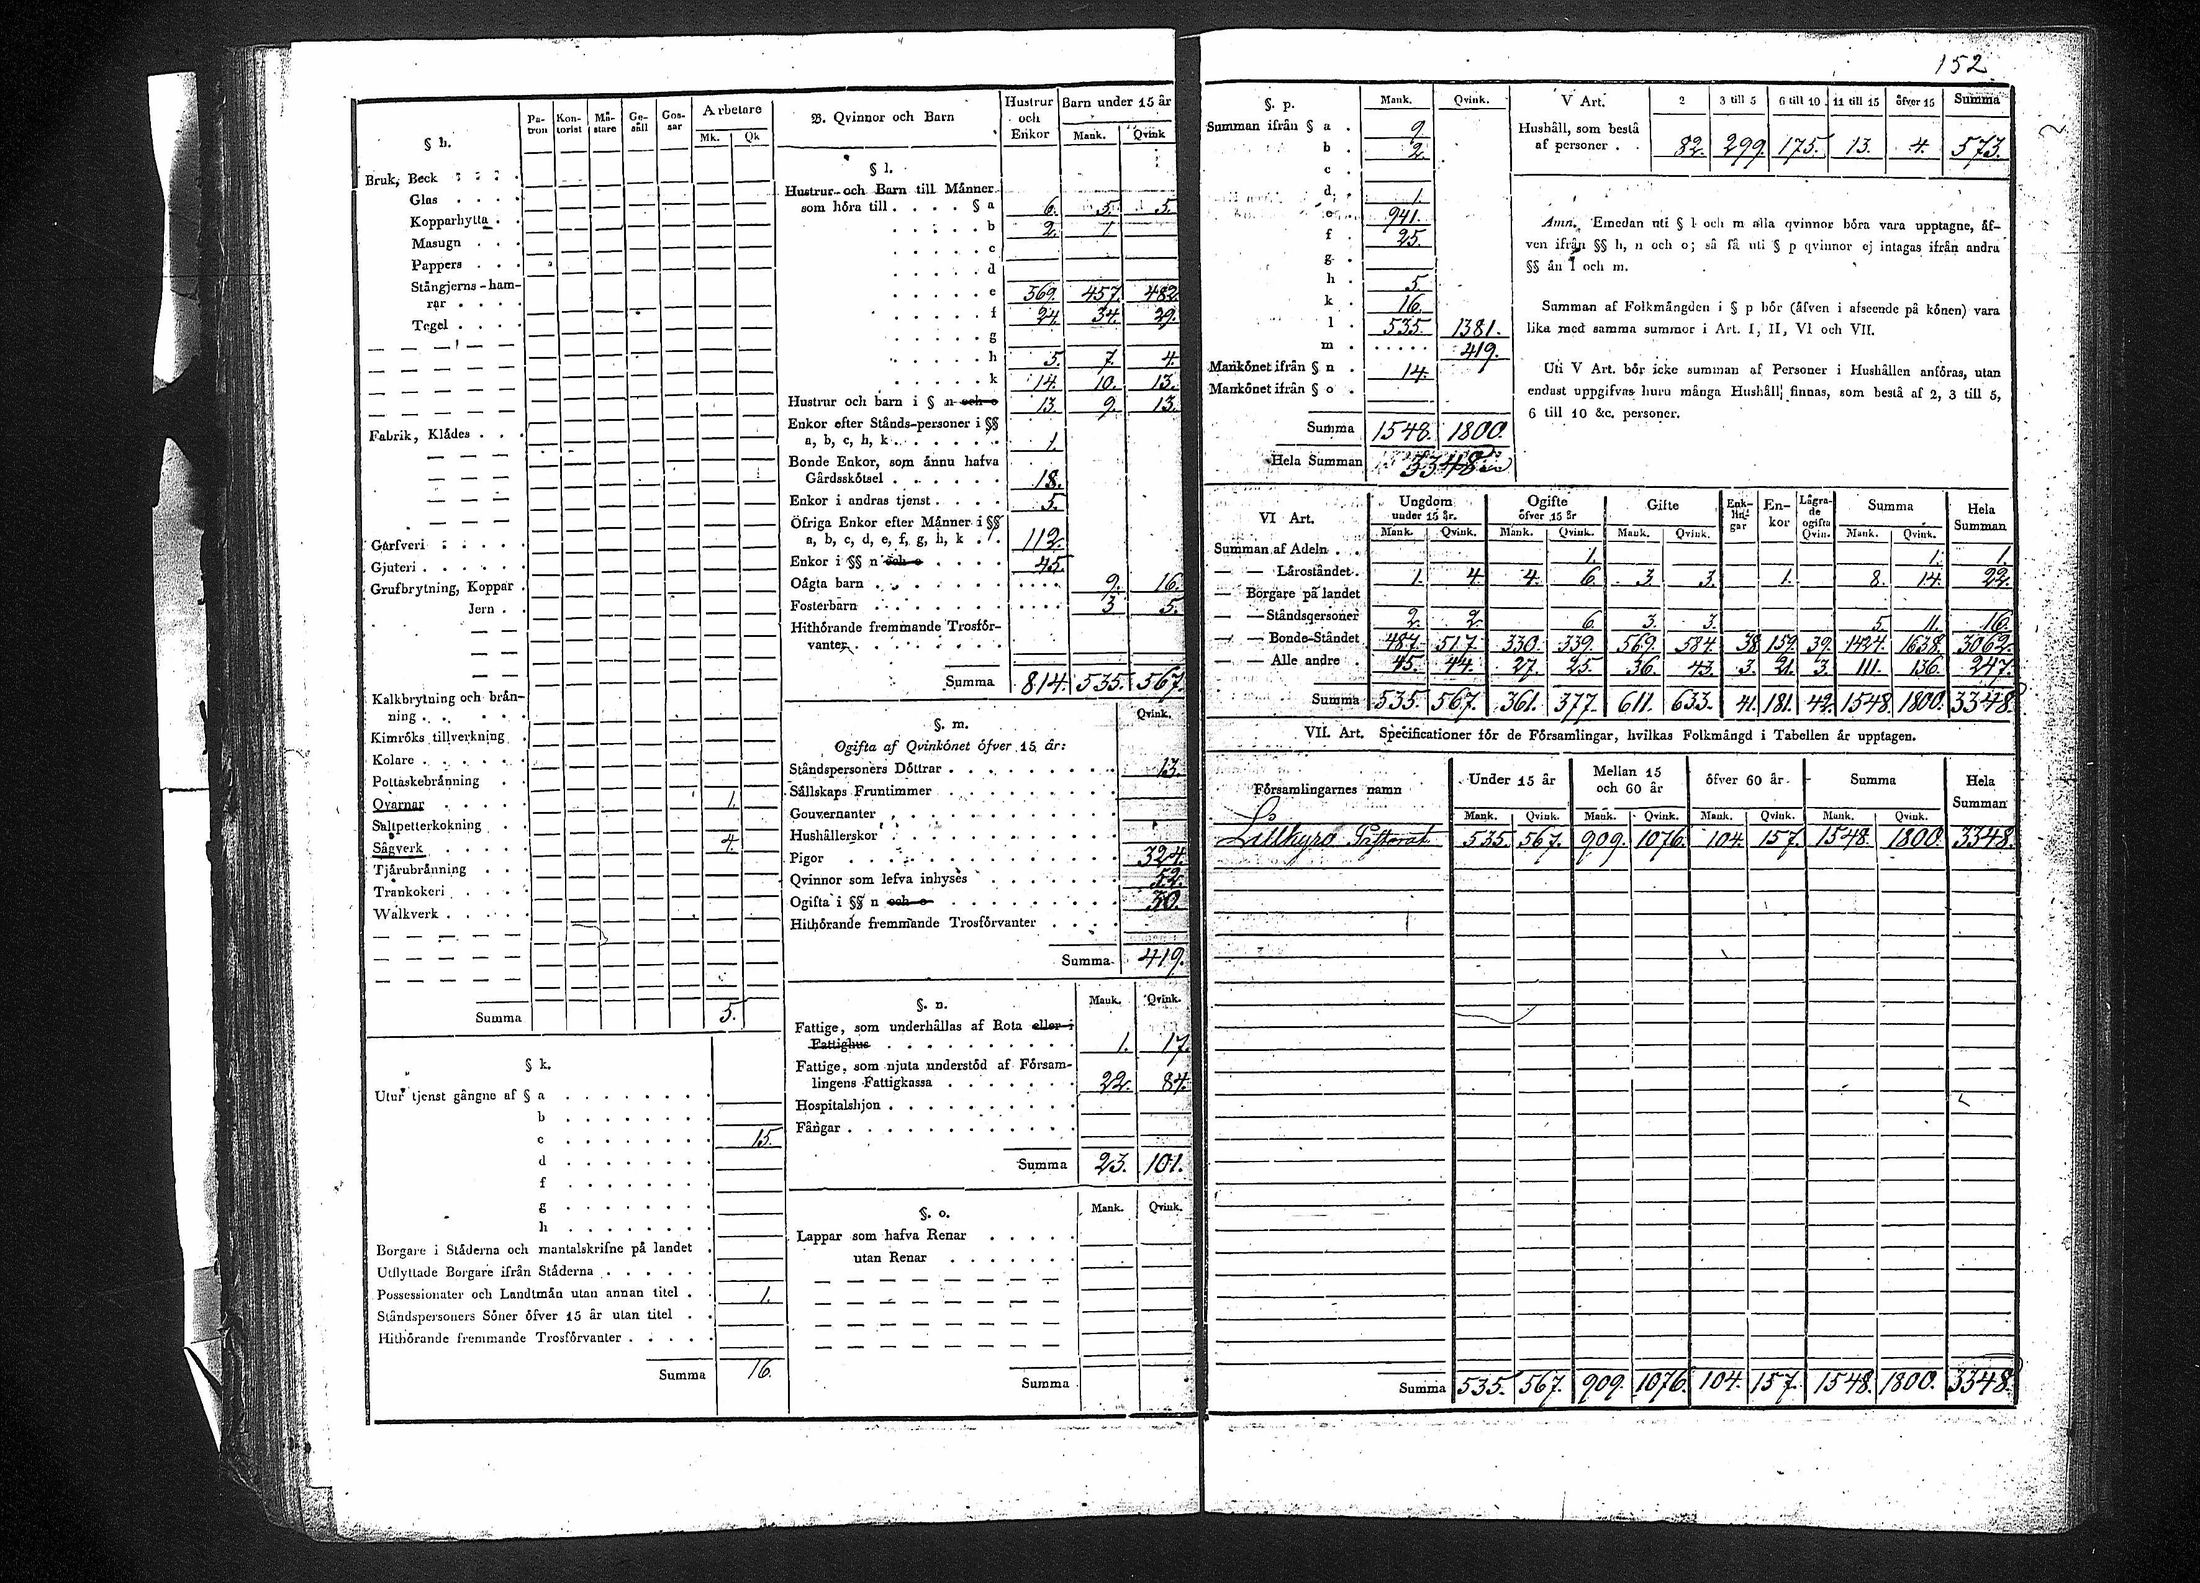 152
§ h.
Pa-tron Kon-torist Mä-stare Ge-säll Gos-sar Arbetare
Mk. Qk
Bruk, Beck
Glas
Kopparhytta
Masugn
Pappers
Stångjerns-ham-
rar
Tegel
Fabrik, Klädes
Garfveri
Gjuteri
Grufbrytning, Koppar
Jern
Kalkbrytning och brän-
ning
Kimröks tillverkning
Kolare
Pottaskebränning
Qvarnar 1.
Saltpetterkokning
Sågverk 4.
Tjärubränning
Trankokeri
Walkverk
Summa 5.
§ k.
Utur tjenst gångne af § a
b
c 15.
d
f
g
h
Borgare i Städerna och mantalskrifne på landet
Utflyttade Borgare ifrån Städerna
Possessionater och Landtmän utan annan titel 1.
Ståndspersoners Söner öfver 15 år utan titel
Hithörande fremmande Trosförvanter
Summa 16.
B. Qvinnor och Barn Hustrur och Enkor Barn under 15 år
Mank. Qvink
§ l.
Hustrur och Barn till Männer
som höra till § a 6. 5. 5.
b 2. 1
c
d
e 569. 457. 482.
f 24. 34. 29.
g
h 5. 7. 4.
k 14. 10. 13.
Hustrur och barn i § n och o 13. 9. 13.
Enkor efter Stånds-personer i §§
a, b, c, h, k 1.
Bonde Enkor, som ännu hafva
Gårdsskötsel 18.
Enkor i andras tjenst 5.
Öfriga Enkor efter Männer i §§
a, b, c, d, e, f, g, h, k 112.
Enkor i §§ n och o 45.
Oägta barn 9. 16.
Fosterbarn 3 5.
Hithörande fremmande Trosför-
vanter
Summa 814. 535. 567.
§. m. Qvink.
Ogifta af Qvinkönet öfver 15 år:
Ståndspersoners Döttrar 13.
Sällskaps Fruntimmer
Gouvernanter
Hushållerskor
Pigor 324.
Qvinnor som lefva inhyses 52.
Ogifta i §§ n och o 30.
Hithörande fremmande Trosförvanter
Summa 419.
§. n. Mank. Qvink.
Fattige, som underhållas af Rota eller i
Fattighus 1. 17.
Fattige, som njuta understöd af Försam-
lingens Fattigkassa 22. 84.
Hospitalshjon
Fångar
Summa 23. 101.
§. o. Mank. Qvink.
Lappar som hafva Renar
utan Renar
Summa
§. p. Mank. Qvink.
Summan ifrån § a 9
b 2.
c
d 1.
e 941.
f 25.
g
h 5.
k 16.
l 535. 1381.
m 419.
Mankönet ifrån § n 14.
Mankönet ifrån § o
Summa 1548. 1800.
Hela Summan 3348
V Art. 2 3 till 5 6 till 10 11 till 15 öfver 15 Summa
Hushåll, som bestå
af personer 82. 299. 175. 13. 4. 573.
Amn. Emedan uti § l och m alla qvinnor böra vara upptagne, äf-
ven ifrån §§ h, n och o; så få uti § p qvinnor ej intagas ifrån andra
§§ än l och m.
Summan af Folkmängden i § p bör (äfven i afseende på könen) vara
lika med samma summor i Art. I, II, VI och VII.
Uti V Art. bör icke summan af Personer i Hushållen anföras, utan
endast uppgifvas huru många Hushåll finnas, som bestå af 2, 3 till 5,
6 till 10 &c. personer.
VI Art. Ungdom under 15 år. Ogifte öfver 15 år Gifte Enk-lin-gar En-kor Lägra-de ogifta Qvin. Summa Hela Summan
Mank. Qvink. Mank. Qvink. Mank. Qvink. Mank. Qvink.
Summan af Adeln 1. 1. 1.
— — Läroståndet 1. 4. 4. 6. 3. 3. 1. 8. 14. 22.
— Borgare på landet
— — Ståndspersoner 2. 2. 6 3. 3. 5. 11. 16.
— — Bonde-Ståndet 487. 517. 330. 339. 569. 584. 38. 159. 39. 1424. 1638. 3062.
— — Alle andre 45. 44. 27. 25. 36. 43. 3. 21. 3. 111. 136. 247.
Summa 535. 567. 361. 377. 611. 633. 41. 181. 42. 1548. 1800. 3348.
VII. Art. Specificationer för de Församlingar, hvilkas Folkmängd i Tabellen är upptagen.
Församlingarnes namn Under 15 år Mellan 15 och 60 år öfver 60 år Summa Hela Summan
Mank. Qvink. Mank. Qvink. Mank. Qvink. Mank. Qvink.
Lillkyro Pastorat 535. 567. 909. 1076. 104. 157. 1548. 1800. 3348.
Summa 535. 567. 909. 1076. 104. 157. 1548. 1800. 3348.